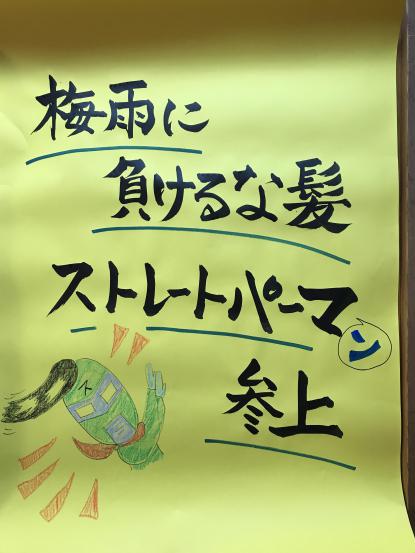 梅雨に
負けるな髪
ストレートパーマン
参上
ス